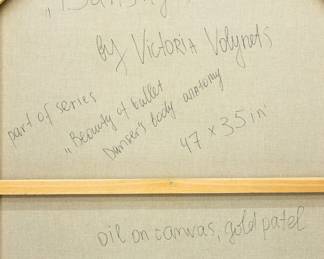 by Victoria Volynets
part of series
„Beauty of ballet
Danser's body anatomy
47 x 35 in
oil on canvas, gold patel